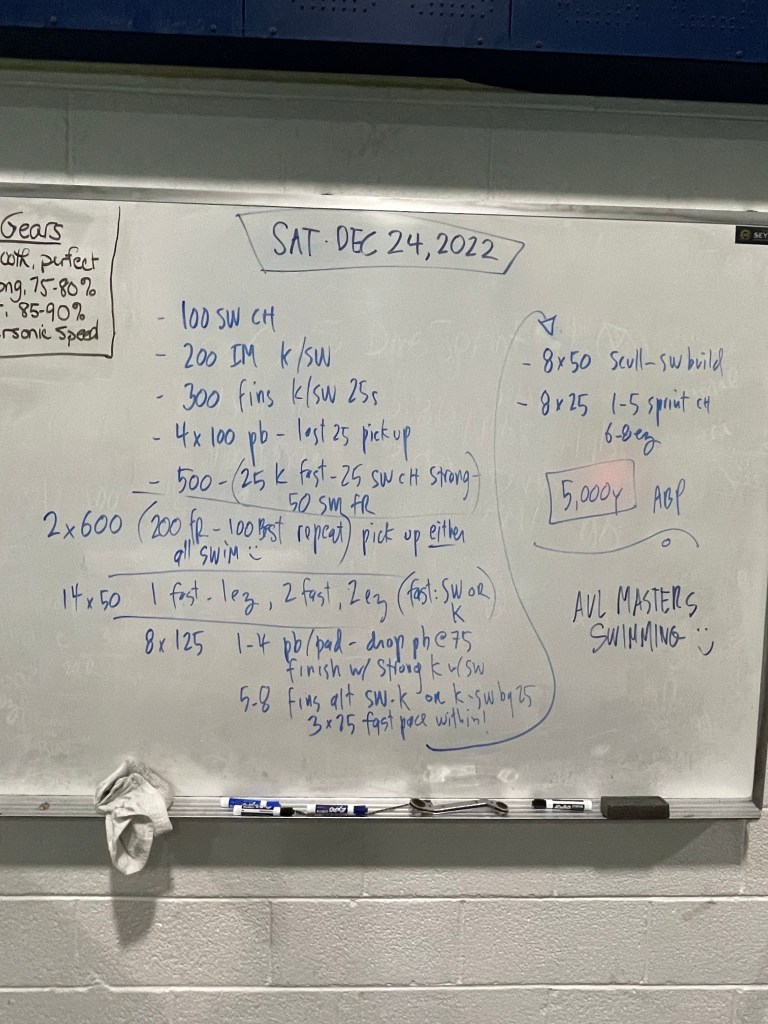 Gears
perfect
75-80%
85-90%
Speed
SAT. DEC 24, 2022
- 100 SW CH
- 200 IM K/SW
- 300 fins K/SW 25s
- 4x100 pb - last 25 pick up
- 500 - (25 K fast - 25 SW CH strong -
50 sm FR)
2x600 (200 FR - 100 Bst repeat) pick up either
all swim
14x50 1 fast - 1 ez, 2 fast, 2 ez (fast: SW OR
K)
8x125 1-4 pb/pad - drop pb @ 75
finish w/ strong K w/ SW
5-8 fins alt SW-K or K-SW by 25
3x25 fast pace within!
- 8x50 Scull - SW build
- 8x25 1-5 sprint CH
6-8 ez
5,000y ABP
AVL MASTERS
SWIMMING